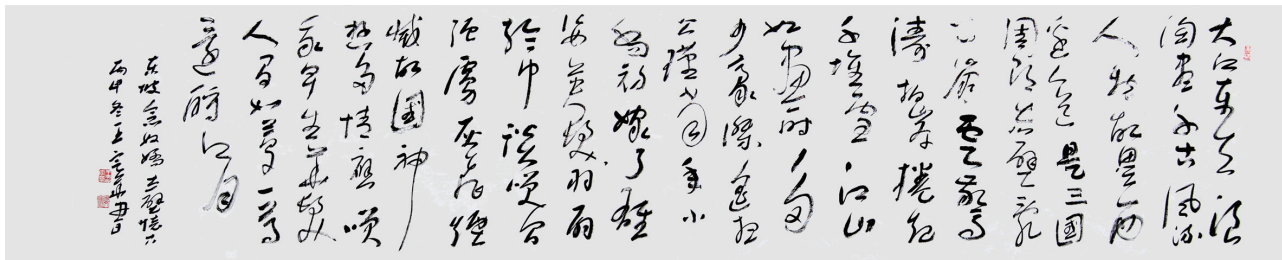 大江東去浪
淘盡千古風流
人物故壘西
邊人道是三國
周郎赤壁亂
石崩雲驚
濤拍岸捲起
千堆雪江山
如畫一時多
少豪傑遙想
公瑾當年小
喬初嫁了雄
姿英發羽扇
綸巾談笑間
強虜灰飛煙
滅故國神
遊多情應笑
我早生華髮
人間如夢一尊
還酹江月
東坡念奴嬌赤壁懷古
丙申冬王華書